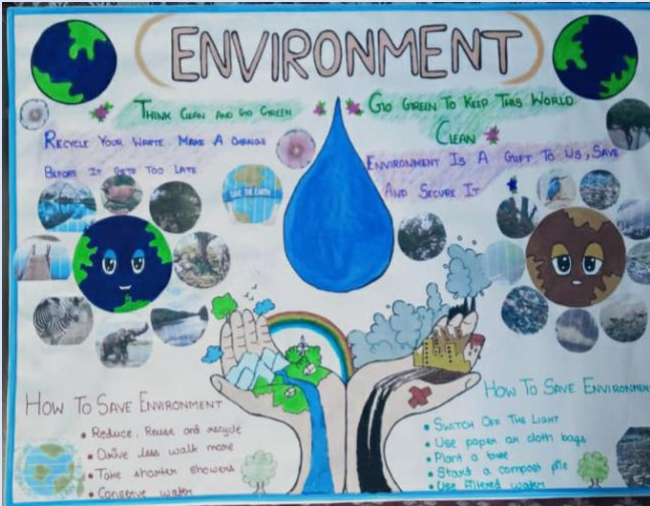 ENVIRONMENT
THINK CLEAN AND GO GREEN
GO GREEN TO KEEP THIS WORLD
CLEAN
RECYCLE YOUR WASTE MAKE A CHANGE
BEFORE IT GETS TOO LATE
ENVIRONMENT IS A GIFT TO US, SAVE
AND SECURE IT
SAVE THE EARTH
HOW TO SAVE ENVIRONMENT
• Reduce, Reuse and recycle
• Drive less walk more
• Take shorter showers
• Conserve water
HOW TO SAVE ENVIRONMENT
• SWITCH OFF THE LIGHT
• Use paper or cloth bags
• Plant a tree
• Start a compost pile
• Use filtered water